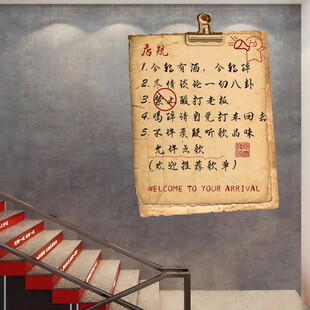 店规
1.今朝有酒，今朝醉
2.尽情谈论一切八卦
3.禁止殴打老板
4.喝醉请自觉打车回去
5.不许质疑听歌品味
允许点歌
(欢迎推荐歌单)
WELCOME TO YOUR ARRIVAL